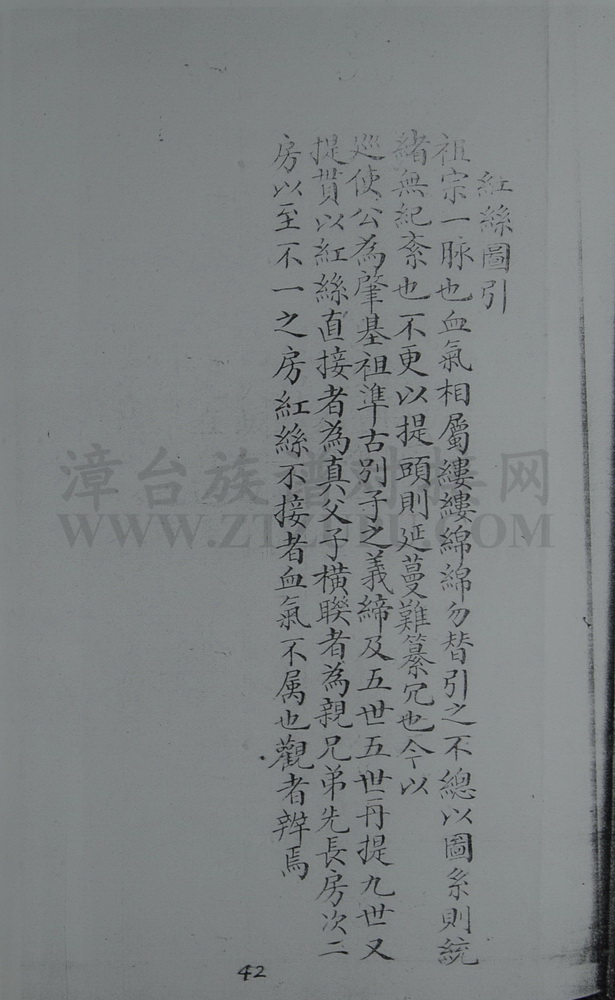 紅絲圖引
祖宗一脉也血氣相屬縷縷綿綿勿替引之不總以圖系則統
緒無紀紊也不更以提頭則延蔓難纂冗也今以
巡使公為肇基祖準古別子之義締及五世五世再提九世又
提貫以紅絲直接者為真父子橫聯者為親兄弟先長房次二
房以至不一之房紅絲不接者血氣不属也觀者辨焉
42
漳台族谱对接网
WWW.ZTZPU.COM